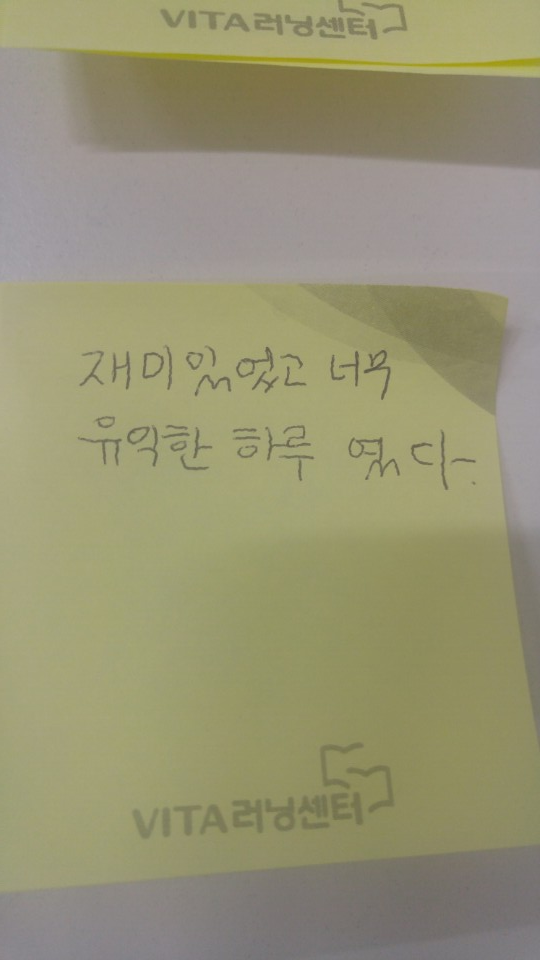 VITA러닝센터
재미있었고 너무
유익한 하루 였다.
VITA러닝센터